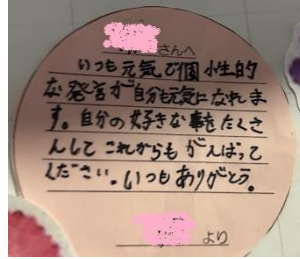 さんへ
いつも元気で個性的
な発言が自分も元気になれま
す。自分の好きな事をたくさ
んして これからも がんばって
ください。いつもありがとう。
より